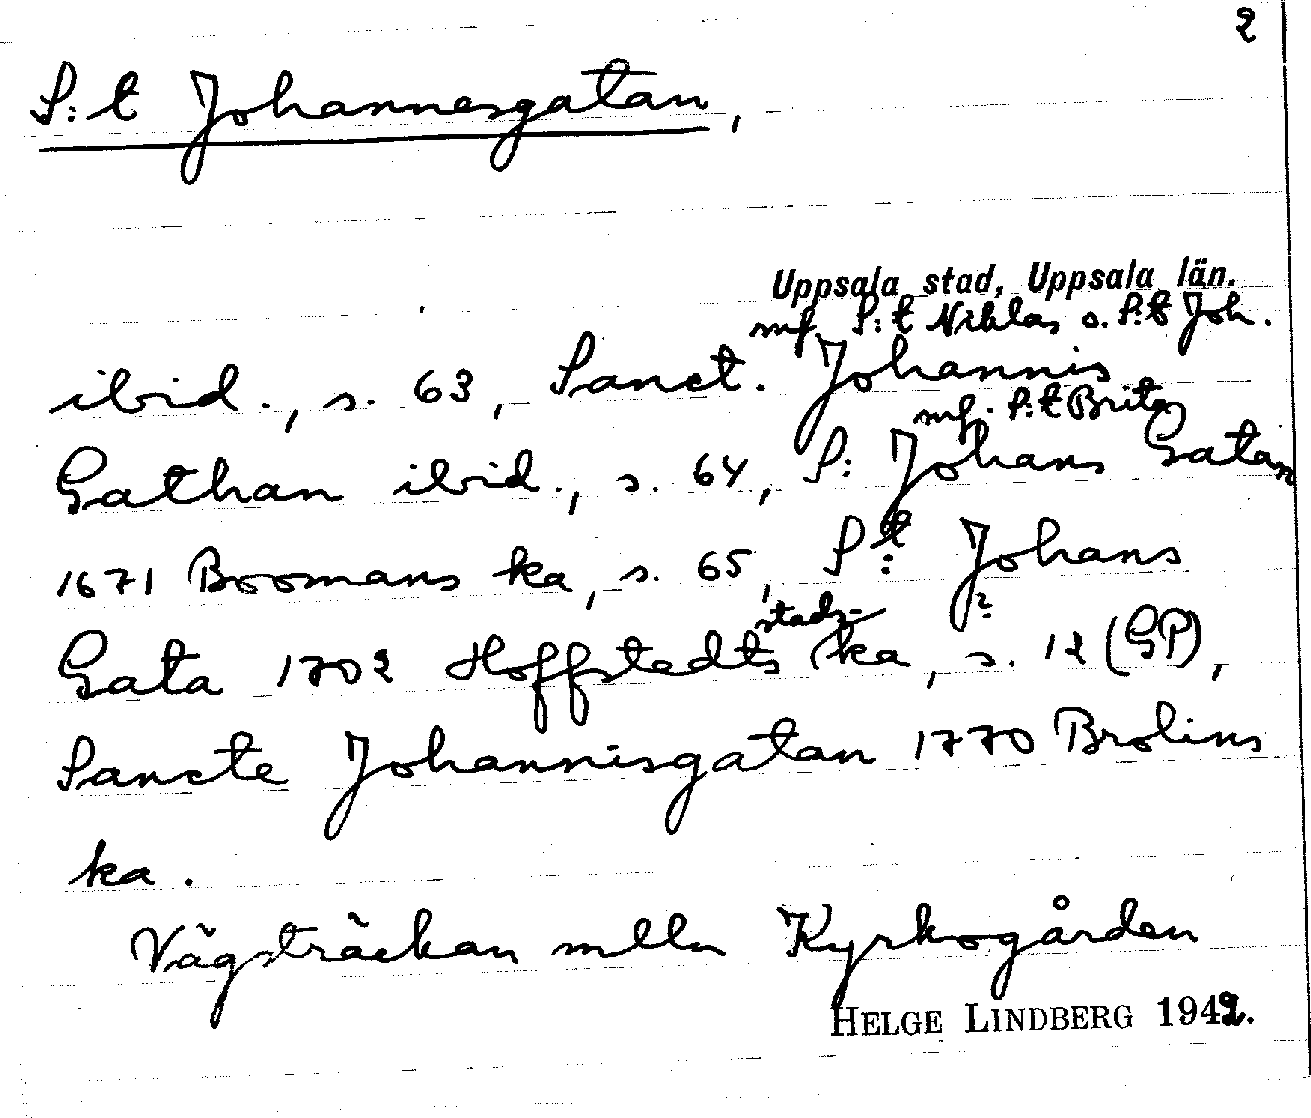 2
S:t Johannesgatan,
Uppsala stad, Uppsala län.
mf. S:t Niklas o. S:t Joh.
ibid., s. 63, Sanct. Johannis
mf. S:t Brita
Gathan ibid., s. 64, S: Johans Gatan
1671 Boomans ka, s. 65, S:t Johans
stads- ?
Gata 1702 Hoffstedts ka, s. 12 (GP),
Sancte Johannisgatan 1770 Brolins
ka.
Vägsträckan mlln Kyrkogården
HELGE LINDBERG 1942.